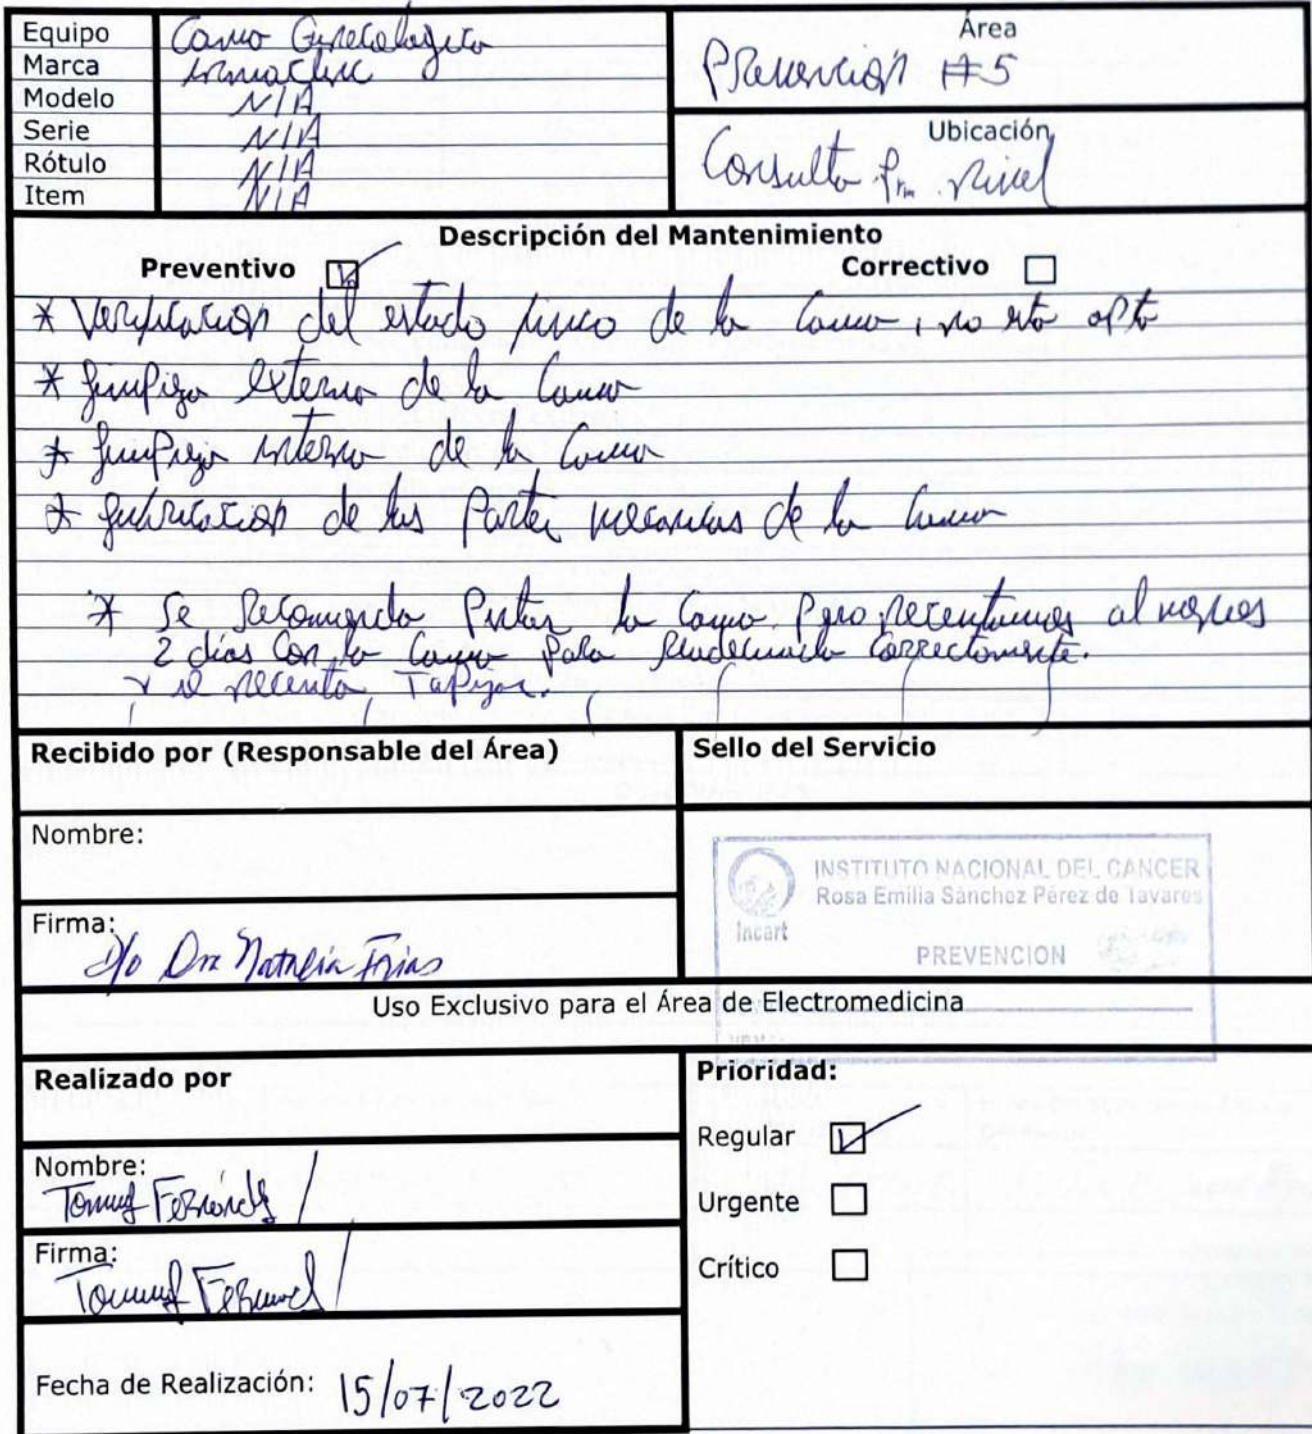 Equipo Cama Ginecologica
Marca
Modelo N/A
Serie N/A
Rótulo N/A
Item N/A
Área
Prevencion #5
Ubicación
Consulta Prm. Nivel
Descripción del Mantenimiento
Preventivo Correctivo
* Verificacion del estado fisico de la Cama, no esta apta
* Limpieza externa de la Cama
* Limpieza interna de la Cama
* Lubricacion de las Partes mecanicas de la Cama
* Se Recomienda Pintar la Cama Pero necesitamos al menos
2 dias Con la Cama Para correctamente.
y se necesita Tapizar.
Recibido por (Responsable del Área)
Sello del Servicio
Nombre:
Firma:
D/o Dra Natalia Frias
INSTITUTO NACIONAL DEL CANCER
Rosa Emilia Sánchez Pérez de Tavares
Incart
PREVENCION
Uso Exclusivo para el Área de Electromedicina
Realizado por
Nombre:
Tommy Fernandez
Firma:
Tommy Fernandez
Fecha de Realización: 15/07/2022
Prioridad:
Regular
Urgente
Crítico